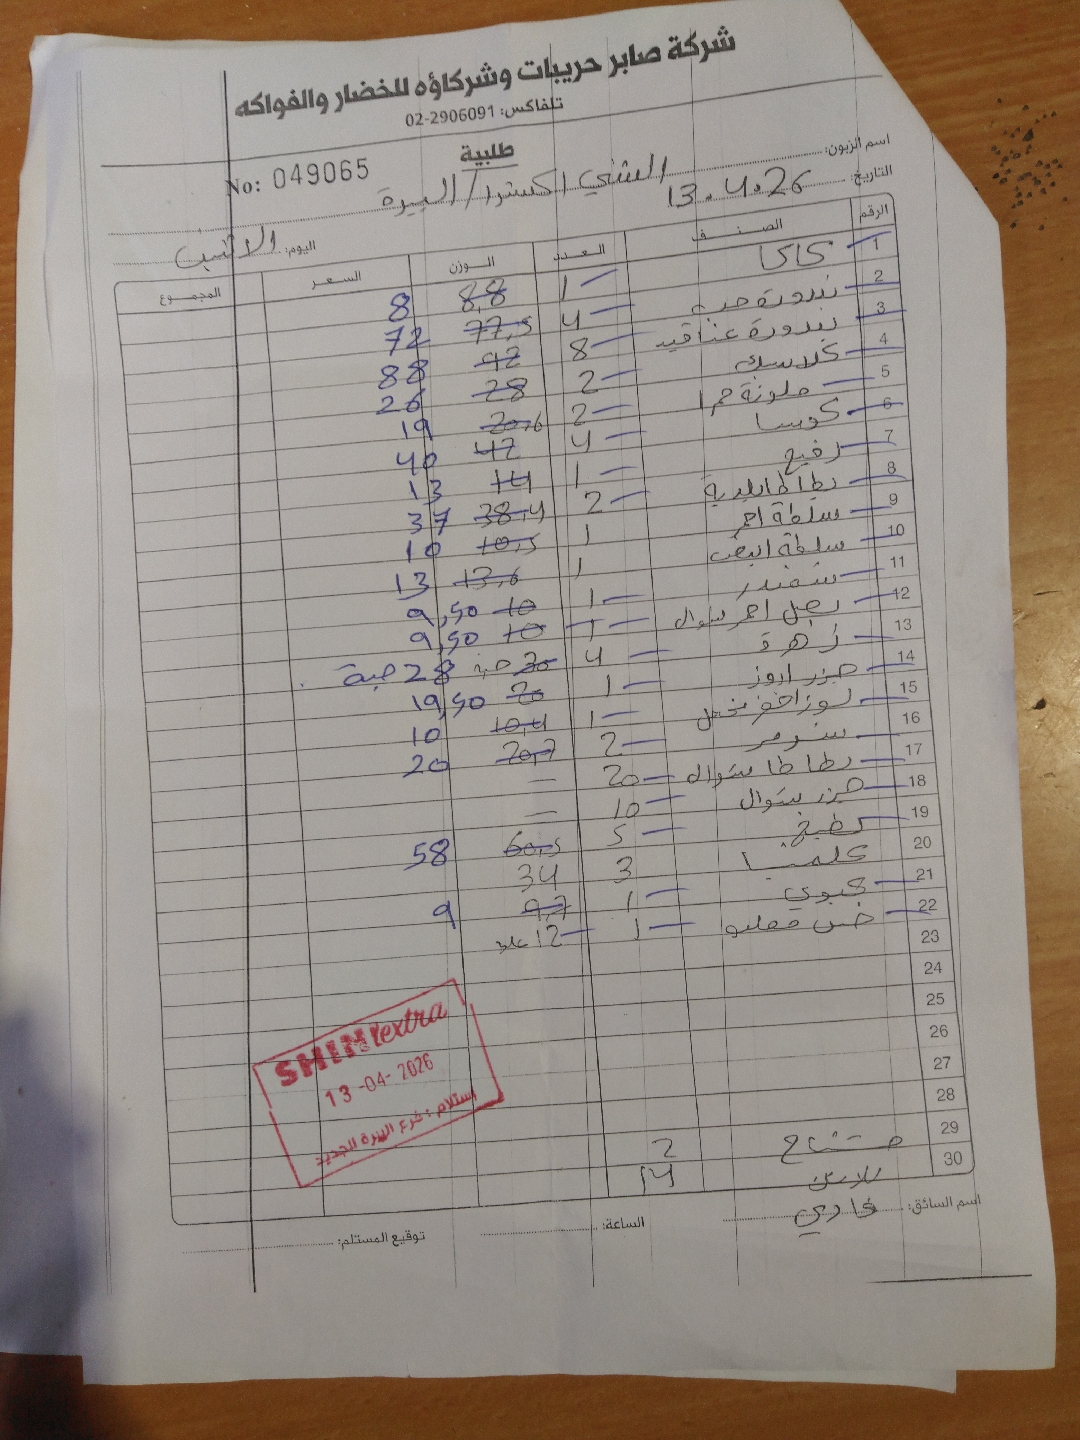 شركة صابر حريبات وشركاؤه للخضار والفواكه
تلفاكس: 02-2906091
طلبية
No: 049065
اسم الزبون: الشني اكسترا / البيرة
التاريخ: 13.4.26
اليوم: الاثنين
الرقم الصنف العدد الوزن السعر المجموع
1 كاكا 1 8,8 8
2 بندورة حب 4 77,5 72
3 بندورة عناقيد 8 92 88
4 كلاسيك 2 28 26
5 ملونة حمرا 2 20,6 19
6 كوسا 4 42 40
7 رفيع 1 14 13
8 بطاطا بلدية 2 38,4 37
9 سلطة احمر 1 10,5 10
10 سلطة ابيض 1 13,6 13
11 شمندر 1 10 9,50
12 بصل احمر شوال 1 10 9,50
13 زهرة 4 30 حبة 28 حبة
14 جزر ابوز 1 20 19,50
15 لوز اخضر مخمل 1 10,4 10
16 ستومر 2 20,7 20
17 بطاطا شوال 20 –
18 جزر شوال 10 –
19 بطيخ 5 60,5 58
20 كلمنتينا 3 34
21 1 9,7 9
22 خس 1 12
23
24
25
26
27
28
29 2
30 14
اسم السائق: فادي
الساعة:
توقيع المستلم:
SHINI extra
13-04-2026
استلام : فرع البيرة الجديد